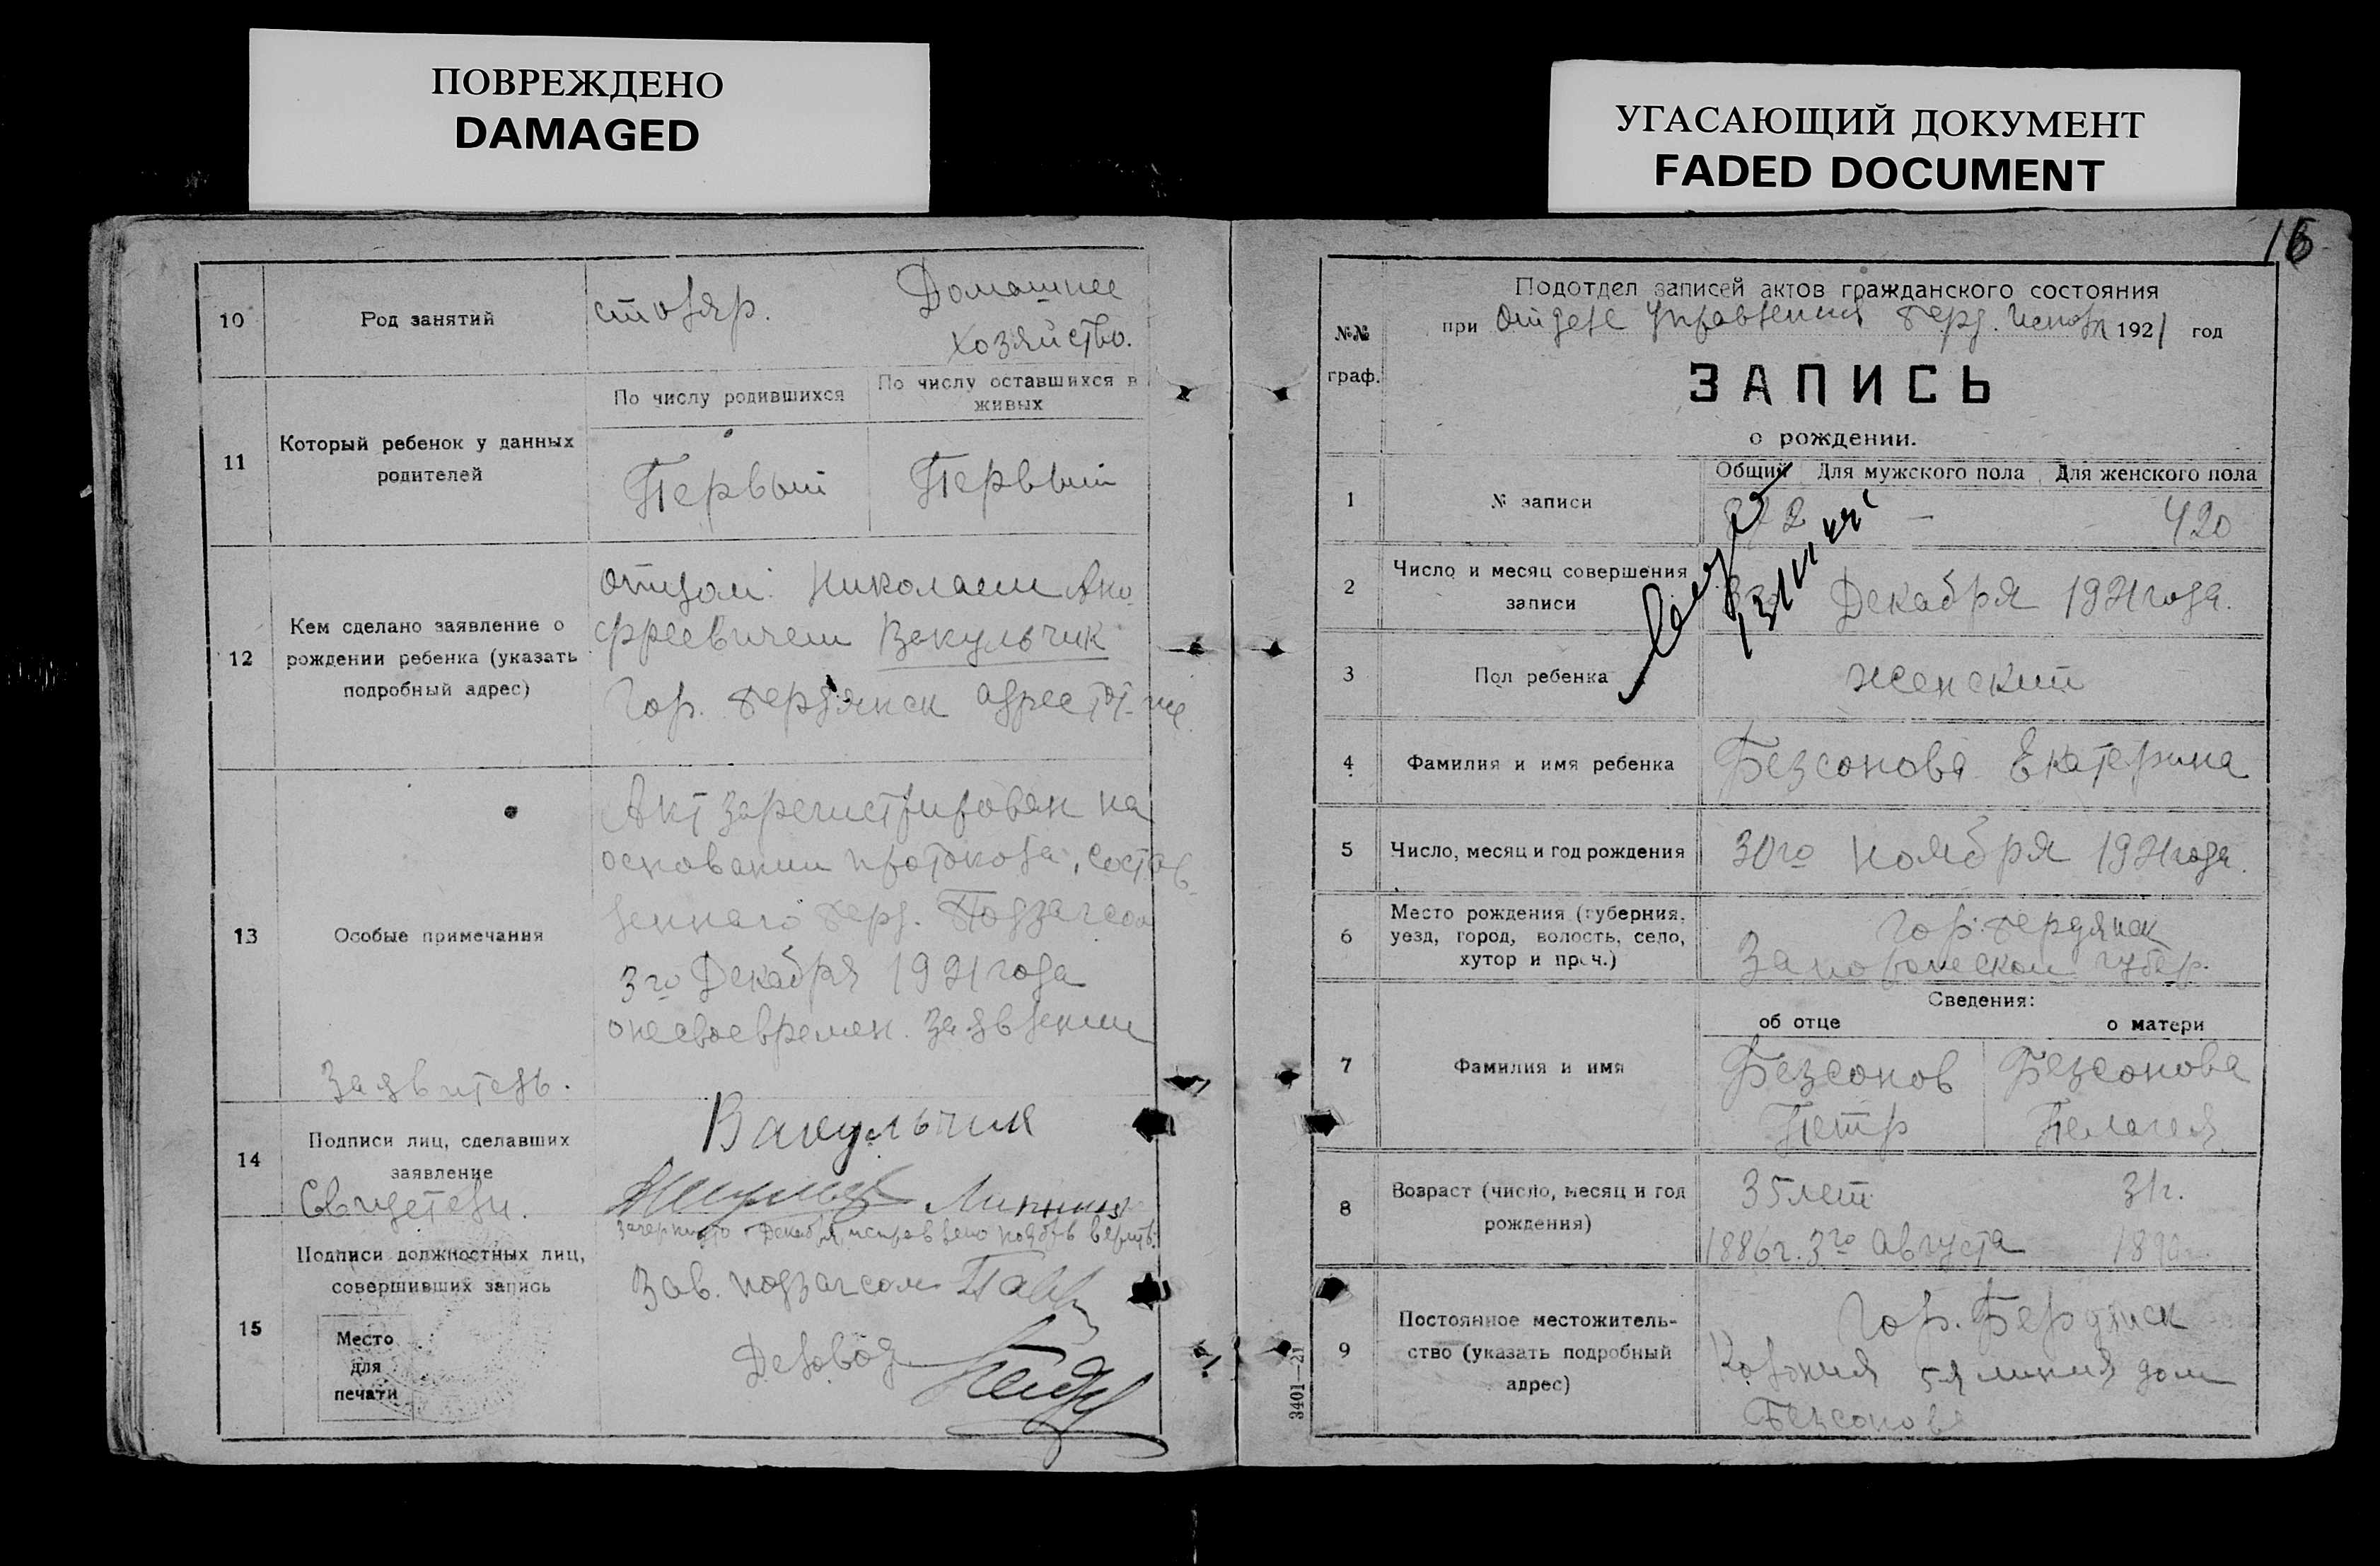 ПОВРЕЖДЕНО
DAMAGED
УГАСАЮЩИЙ ДОКУМЕНТ
FADED DOCUMENT
10
Род занятий
столяр.
Домашнее
хозяйство.
11
Который ребенок у данных
родителей
По числу родившихся
По числу оставшихся в
живых
Первый
Первый
12
Кем сделано заявление о
рождении ребенка (указать
подробный адрес)
отцом: Николаем Ано
фреевичем Вакульчик
Гор. Бердянск адрес тот-же
13
Особые примечания
Акт зарегистрирован на
основании протокола, состав-
леннаго Берд. Подзагсом
3го Декабря 1921 года
о несвоевремен. заявлении
Заявитель.
14
Подписи лиц, сделавших
заявление
Свидетели.
Вакульчик
15
Подписи должностных лиц,
совершивших запись
Место
для
печати
зачеркнуто Декабря исправлено
Зав. подзагсом
Деловод
16
№№
граф.
Подотдел записей актов гражданского состояния
при Отделе Управления Берд. Исполк 1921 год
ЗАПИСЬ
о рождении.
1
№ записи
Общий Для мужского пола Для женского пола
— 420
2
Число и месяц совершения
записи
Декабря 1921 года.
3
Пол ребенка
женский
4
Фамилия и имя ребенка
Безсонова Екатерина
5
Число, месяц и год рождения
30го ноября 1921 года.
6
Место рождения (губерния,
уезд, город, волость, село,
хутор и проч.)
Гор. Бердянск
Запорожской губер.
Сведения:
об отце
о матери
7
Фамилия и имя
Безсонов
Петр
Безсонова
Пелагея
8
Возраст (число, месяц и год
рождения)
35 лет
31 г.
1886 г. 3го Августа
9
Постоянное местожитель-
ство (указать подробный
адрес)
Гор. Бердянск
Колония 5я линия дом
Безсонова
3401—21